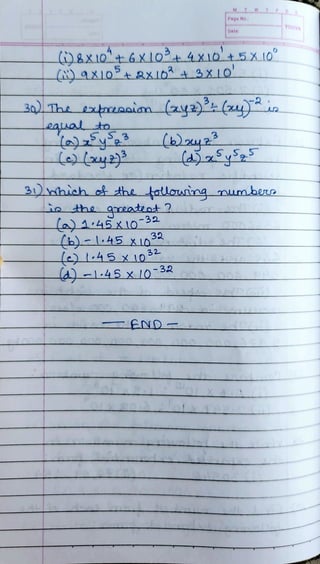 M T W T F S S
Page No.:
Date:
YOUVA
(i) 8×10⁴ + 6×10³ + 4×10¹ + 5×10⁰
(ii) 9×10⁵ + 2×10² + 3×10¹
30) The expression (xyz)³ ÷ (xy)⁻² is
equal to
(a) x⁵y⁵z³ (b) xyz³
(c) (xyz)³ (d) x⁵y⁵z⁵
31) Which of the following numbers
is the greatest?
(a) 1.45 × 10⁻³²
(b) -1.45 × 10³²
(c) 1.45 × 10³²
(d) -1.45 × 10⁻³²
— END —